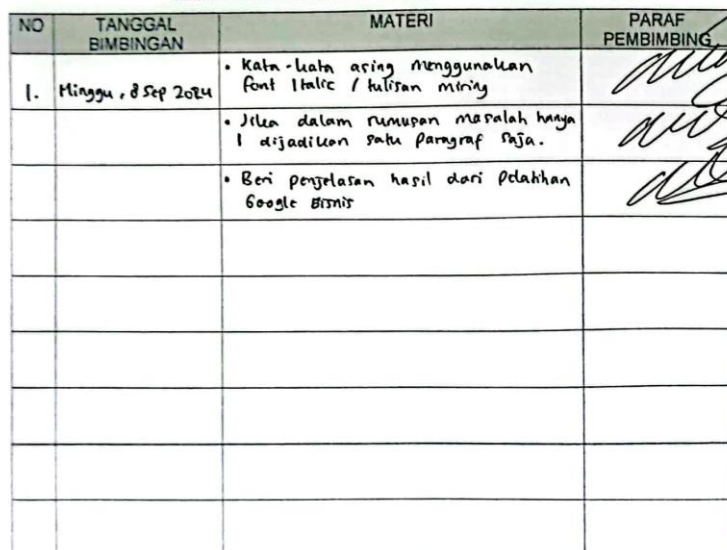 NO TANGGAL BIMBINGAN MATERI PARAF PEMBIMBING
1. Minggu, 8 Sep 2024
• Kata-kata asing menggunakan
font Italic / tulisan miring
• Jika dalam rumusan masalah hanya
1 dijadikan satu Paragraf saja.
• Beri penjelasan hasil dari Pelatihan
Google Bisnis